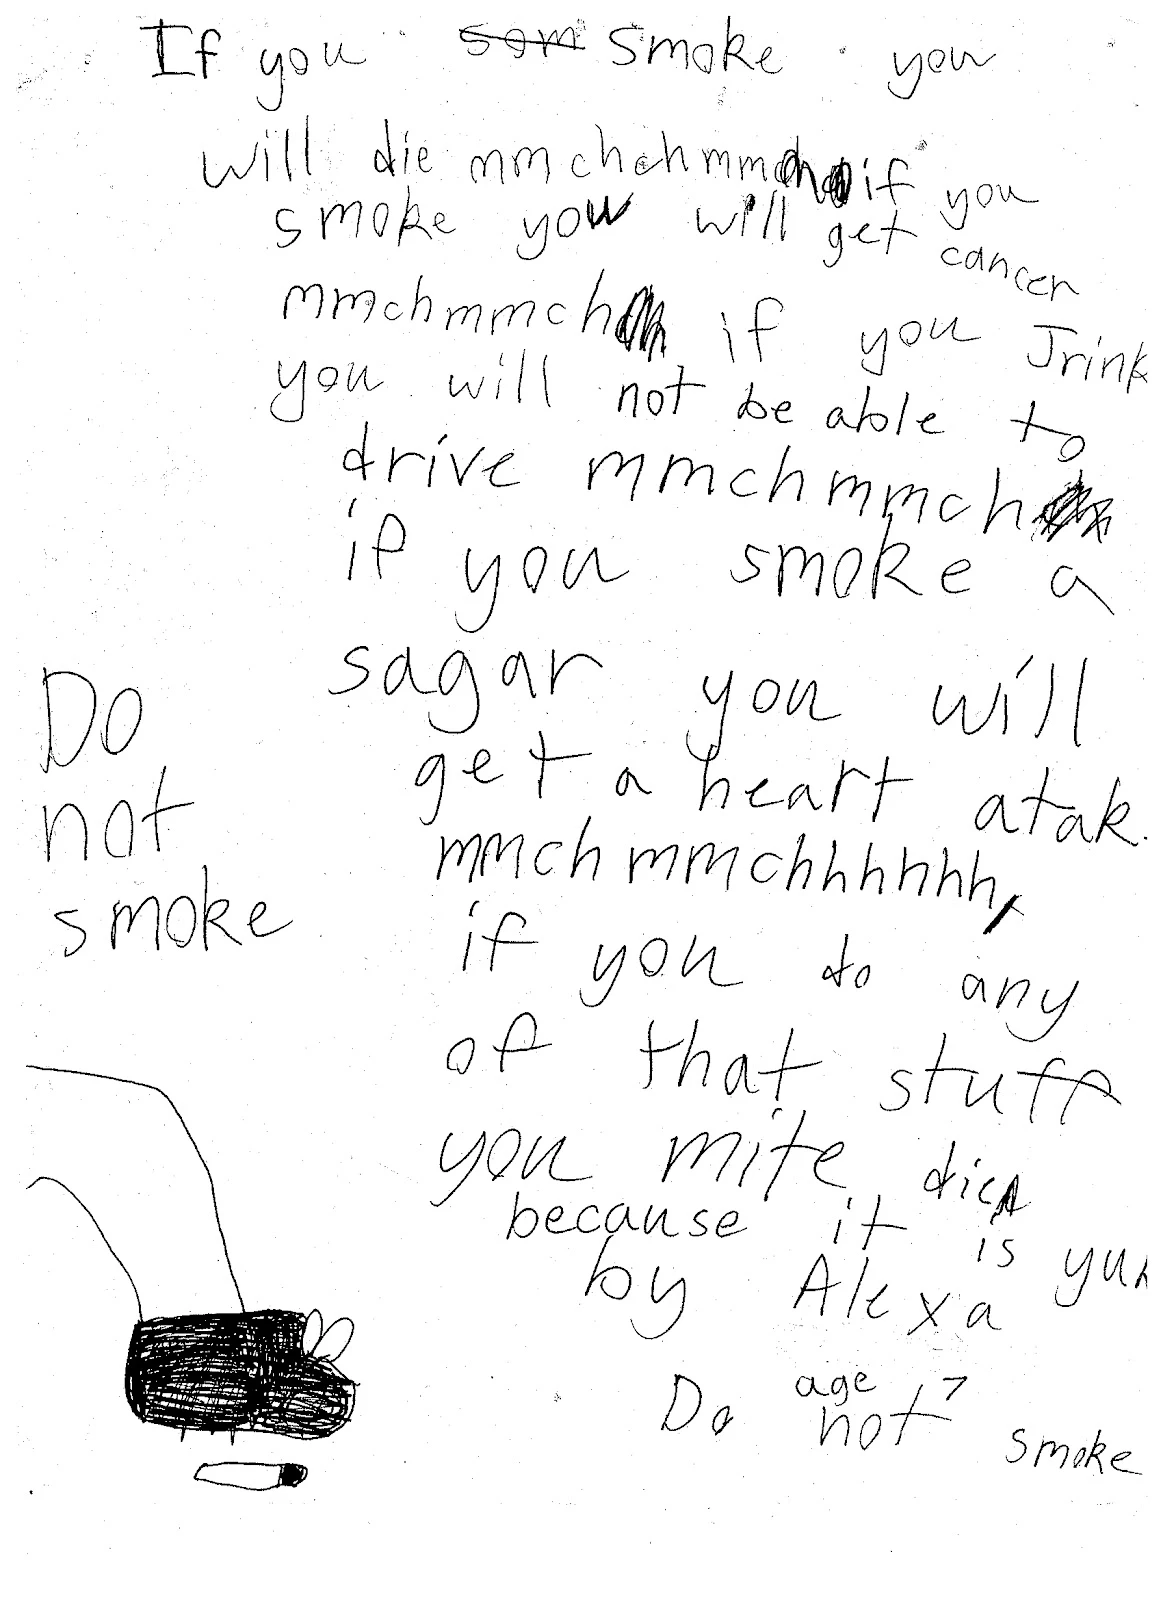 If you som smoke you
will die mmchchmmch if you
smoke you will get cancer
mmchmmch if you Jrink
you will not be able to
drive mmchmmch
if you smoke a
sagar you will
get a heart atak.
mmchmmchhhhhh,
if you do any
of that stuff
you mite die
because it is
by Alexa
age 7
Do not smoke
Do
not
smoke